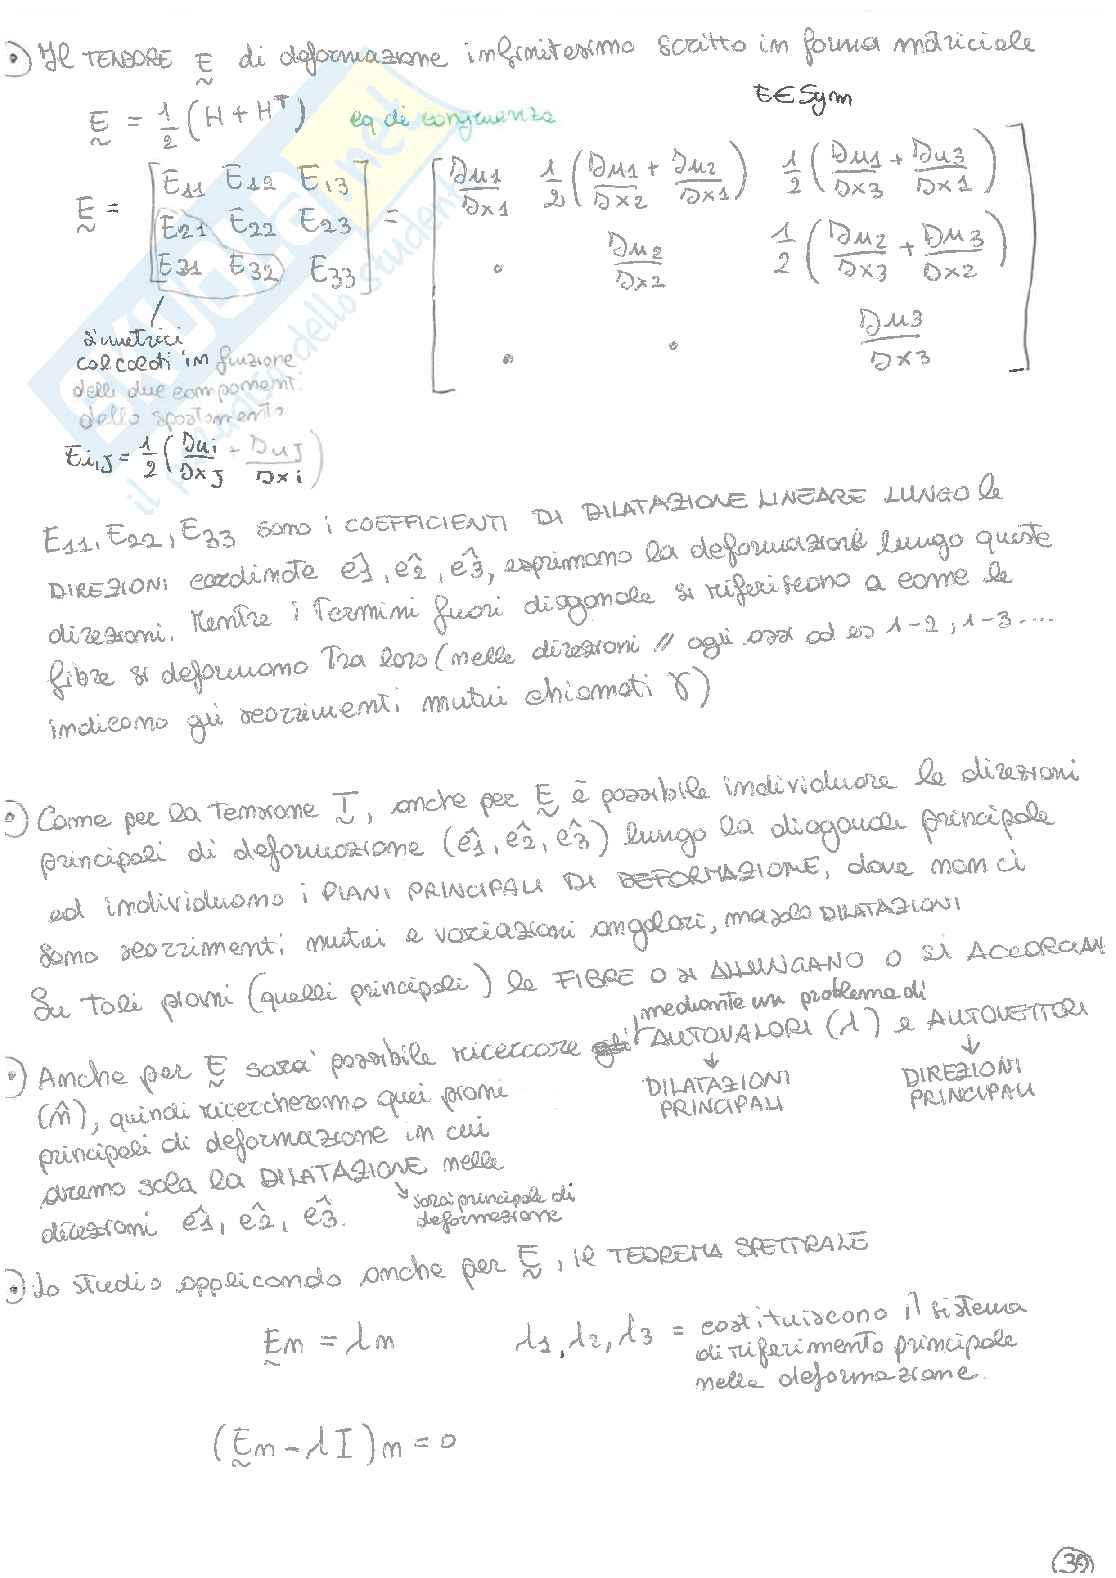 •) Il TENSORE E di deformazione infinitesimo scritto in forma matriciale
E ∈ Sym
E = 1/2 (H + H^T) eq di congruenza
E = [E11 E12 E13 = [Du1/Dx1 1/2(Du1/Dx2 + Du2/Dx1) 1/2(Du1/Dx3 + Du3/Dx1)
E21 E22 E23] • Du2/Dx2 1/2(Du2/Dx3 + Du3/Dx2)
E31 E32 E33 • • Du3/Dx3]
simetrici
calcolati in funzione
delle due componenti
dello spostamento
Ei,j = 1/2 (Dui/Dxj + Duj/Dxi)
E11, E22, E33 sono i COEFFICIENTI DI DILATAZIONE LINEARE LUNGO le
DIREZIONI coordinate ê1, ê2, ê3, esprimono la deformazione lungo queste
direzioni. Mentre i Termini fuori diagonale si riferiscono a come le
fibre si deformano Tra loro (nelle direzioni // agli assi ad es 1-2, 1-3....
indicano gli scorrimenti mutui chiamati γ)
•) Come per la Tensione T, anche per E è possibile individuare le direzioni
principali di deformazione (ê1, ê2, ê3) lungo la diagonale principale
ed individuano i PIANI PRINCIPALI DI DEFORMAZIONE, dove non ci
sono scorrimenti mutui e variazioni angolari, ma solo DILATAZIONI
Su tali piani (quelli principali) le FIBRE O si ALLUNGANO O SI ACCORCIAN
mediante un problema di
•) Anche per E sarà possibile ricercare gli AUTOVALORI (λ) e AUTOVETTORI
↓ ↓
DILATAZIONI DIREZIONI
PRINCIPALI PRINCIPALI
(n̂), quindi ricercheremo quei piani
principali di deformazione in cui
avremo solo la DILATAZIONE nelle
direzioni ê1, ê2, ê3.
sarà principale di
deformazione
•) Lo studio applicando anche per E, il TEOREMA SPETTRALE
En = λn λ1, λ2, λ3 = costituiscono il sistema
di riferimento principale
nella deformazione.
(En - λI)n = 0
39
SKUOLA.net
il paradiso dello studente